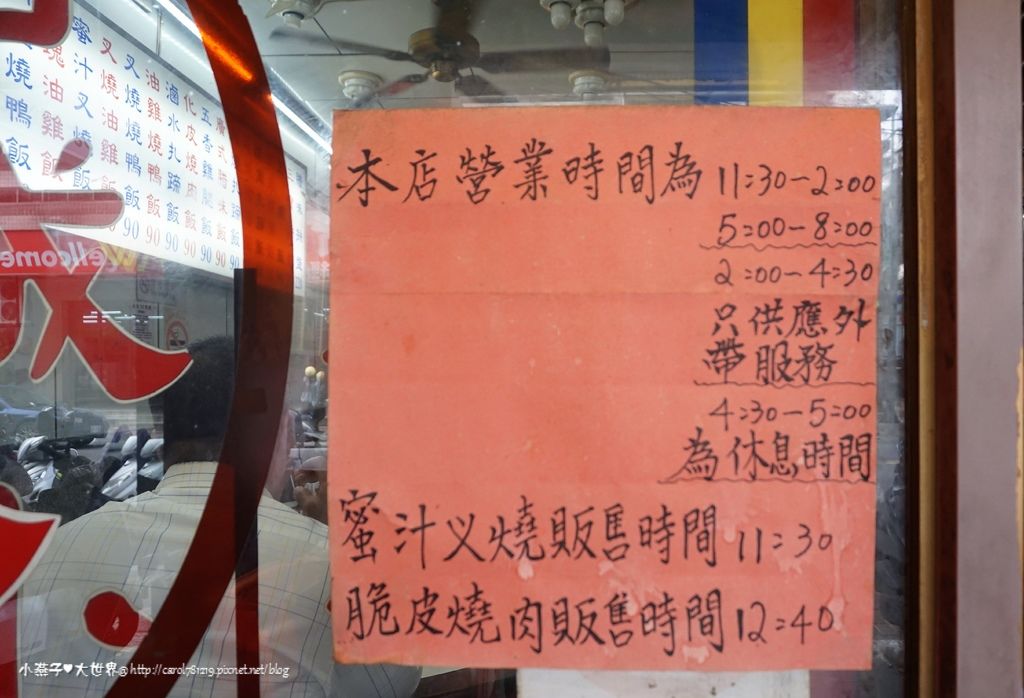 本店營業時間為 11:30-2:00
5:00-8:00
2:00-4:30
只供應外
帶服務
4:30-5:00
為休息時間
蜜汁义燒販售時間 11:30
脆皮燒肉販售時間 12:40
燒鴨飯
油雞飯
蜜汁叉燒飯
叉燒油雞飯 90
叉燒鴨飯 90
油雞燒鴨飯 90
滷水扎蹄飯 90
化皮燒肉飯 90
Wellcome
小燕子♥大世界@http://carol781219.pixnet.net/blog